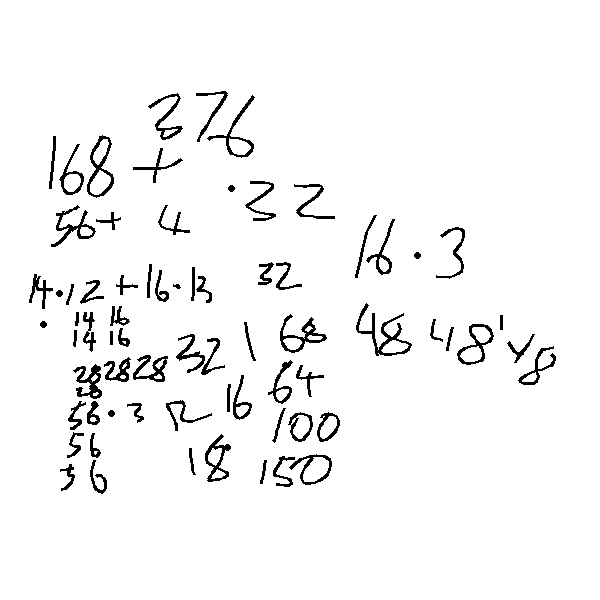 376
168 +
.32
56+ 4
16.3
14.12 +16.13 32
. 14 16
14 16
32 1 68 48 48
28 28 28
28 16 64
56.3 12 100
56
56 18 150